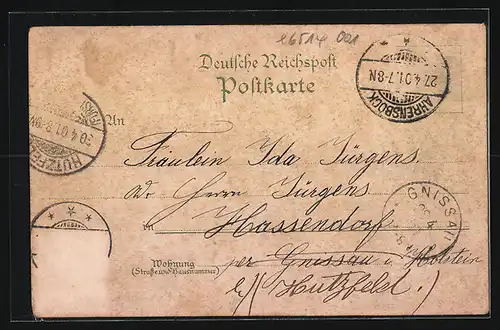 e6514 001
Deutsche Reichspost
Postkarte
AHRENSBÖCK
27.4.01.7-8N
HUTZFE
30.4.01.
An
Fräulein Ida Jürgens
Herrn Jürgens
in Hassendorf
GNISSAU
Wohnung
(Straße und Hausnummer)
per Gnissau i/Holstein
Hutzfeld.)